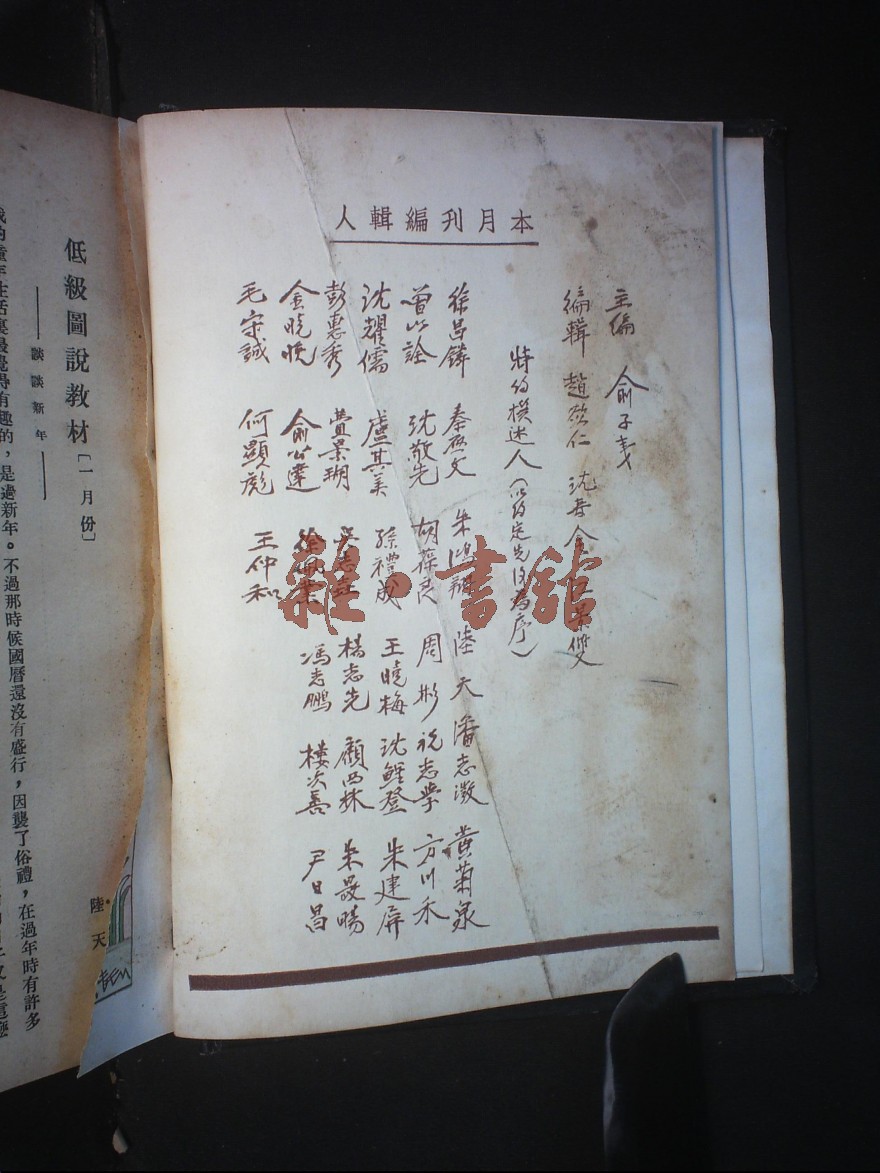 本月刊編輯人
主編 俞子夷
編輯 趙欲仁 沈百 金 雙
特約撰述人（以約定先後為序）
徐昌鏻 秦 文 朱鴻 陸天 潘志澂 黃菊泉
曾以詮 沈敬先 胡葆良 周彬 祝志學 方川禾
沈耀儒 盧其美 孫禮成 王曉梅 沈鯉登 朱建屏
彭惠秀 費景瑚 吳志 楊志先 顧西林 朱晸暘
金曉晚 俞公達 徐 業 馮志鵬 樓次善 尹日昌
毛宗誠 何顯彪 王仲和
雜·書館
低級圖說教材〔一月份〕
——談談新年——
陸天
我的童年生活裏最覺得有趣的，是過新年。不過那時候國曆還沒有盛行，因襲了俗禮，在過年時有許多